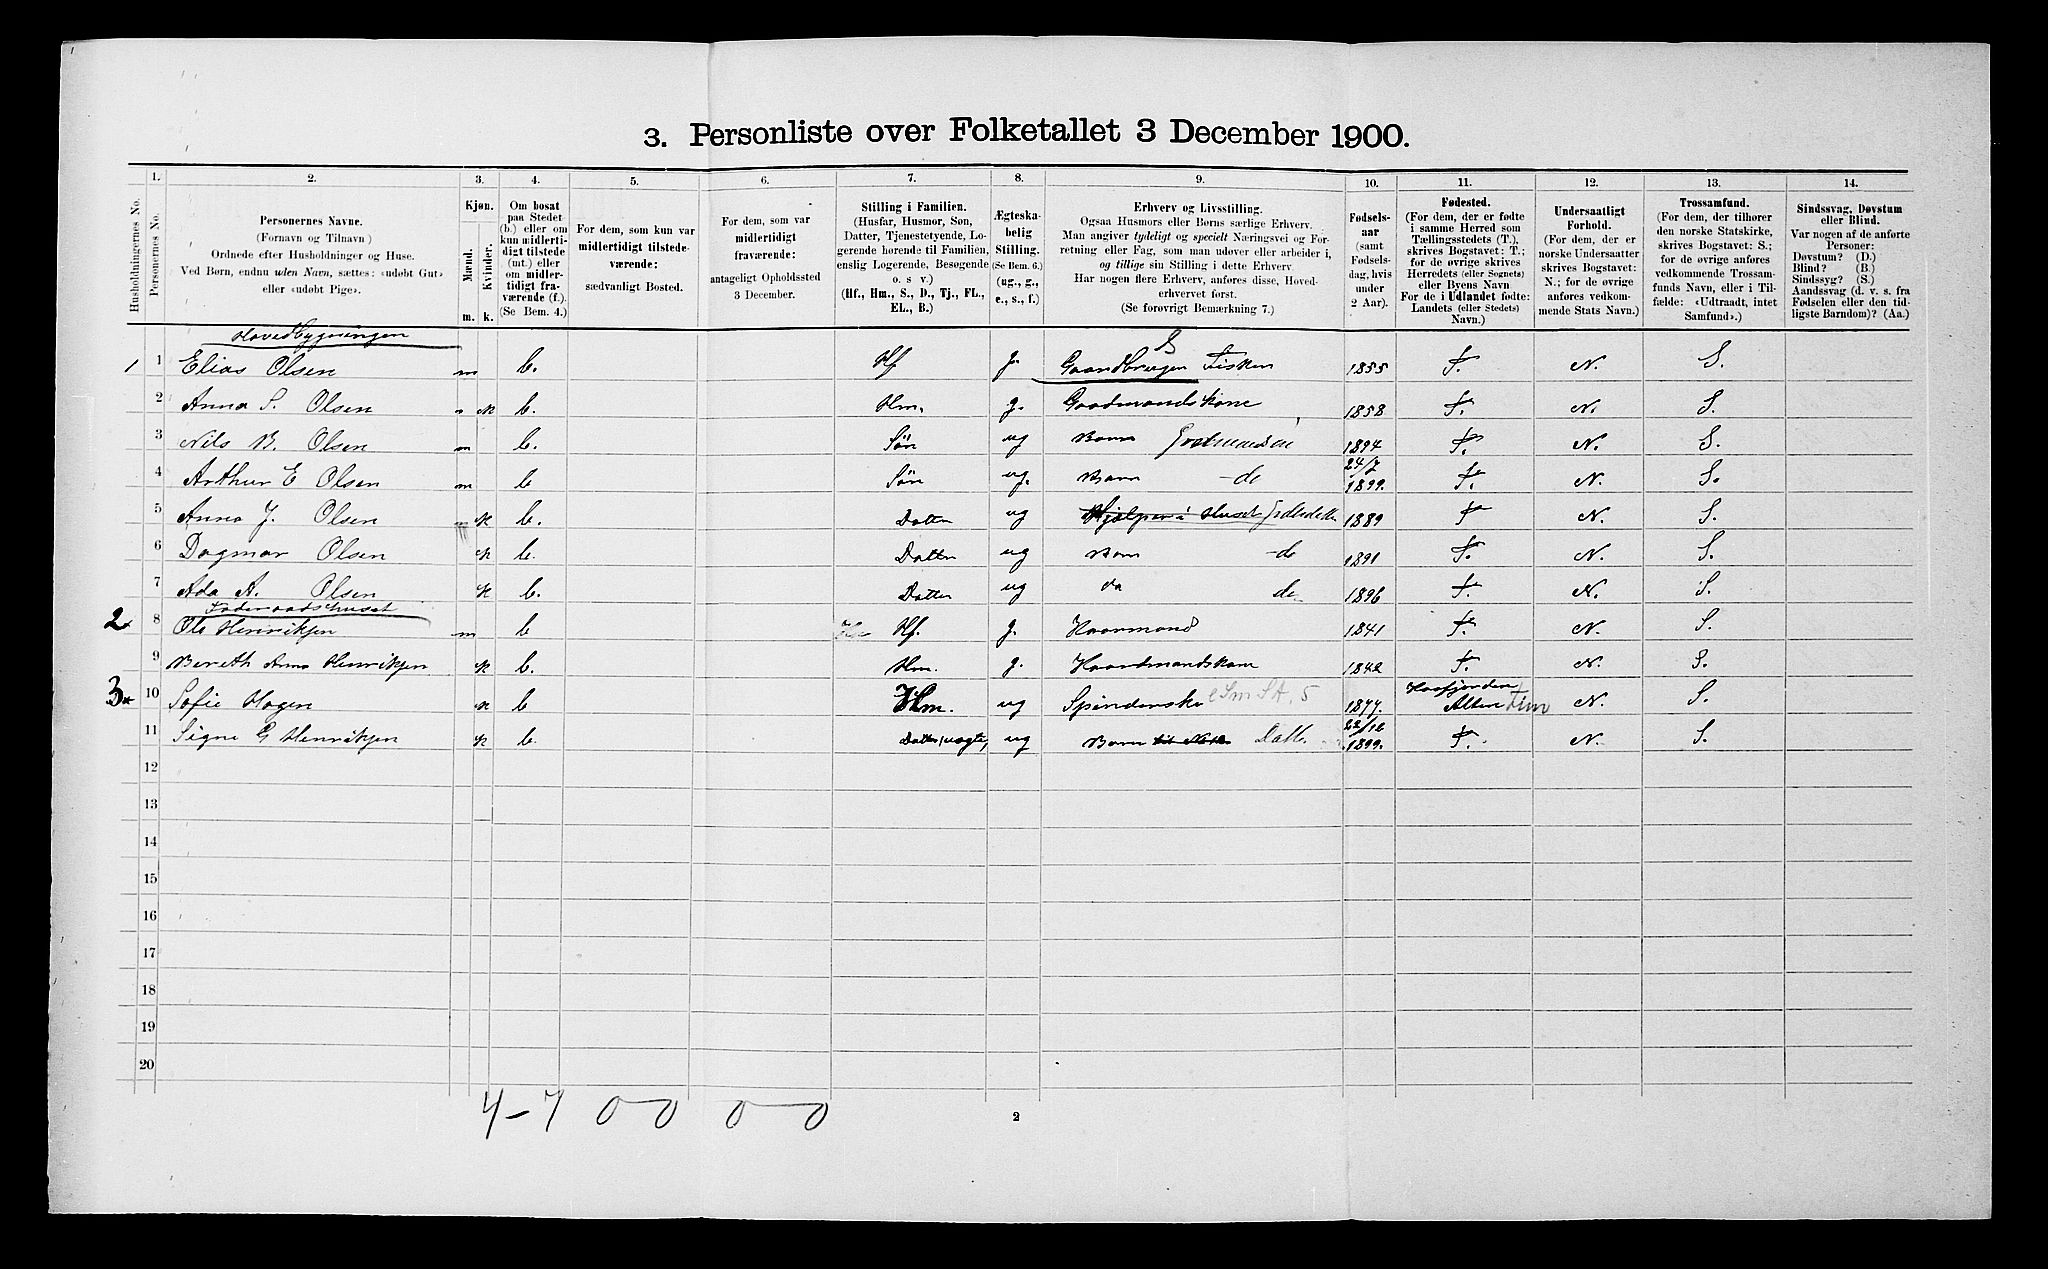 3. Personliste over Folketallet 3 December 1900.
1. 2. 3. 4. 5. 6. 7. 8. 9. 10. 11. 12. 13. 14.
Husholdningernes No.
Personernes No.
Personernes Navne.
(Fornavn og Tilnavn)
Ordnede efter Husholdninger og Huse.
Ved Børn, endnu uden Navn, sættes: «udøbt Gut»
eller «udøbt Pige».
Kjøn.
Mænd.
Kvinder.
m. k.
Om bosat
paa Stedet
(b.) eller om
kun midlerti-
digt tilstede
(mt.) eller
om midler-
tidigt fra-
værende (f.).
(Se Bem. 4.)
For dem, som kun var
midlertidigt tilstede-
værende:
sædvanligt Bosted.
For dem, som var
midlertidigt
fraværende:
antageligt Opholdssted
3 December.
Stilling i Familien.
(Husfar, Husmor, Søn,
Datter, Tjenestetyende, Lo-
gerende hørende til Familien,
enslig Logerende, Besøgende
o. s v.)
(Hf., Hm., S., D., Tj., FL.,
EL., B.)
Ægteska-
belig
Stilling.
(Se Bem. 6.)
(ug., g.,
e., s., f.)
Erhverv og Livsstilling.
Ogsaa Husmors eller Børns særlige Erhverv.
Man angiver tydeligt og specielt Næringsvei og For-
retning eller Fag, som man udøver eller arbeider i,
og tillige sin Stilling i dette Erhverv.
Har nogen flere Erhverv, anføres disse, Hoved-
erhvervet først.
(Se forøvrigt Bemærkning 7.)
Fødsels-
aar
(samt
Fødsels-
dag, hvis
under
2 Aar).
Fødested.
(For dem, der er fødte
i samme Herred som
Tællingsstedets (T.),
skrives Bogstavet: T.;
for de øvrige skrives
Herredets (eller Sognets)
eller Byens Navn
For de i Udlandet fødte:
Landets (eller Stedets)
Navn.)
Undersaatligt
Forhold.
(For dem, der er
norske Undersaatter
skrives Bogstavet:
N.; for de øvrige
anføres vedkom-
mende Stats Navn.)
Trossamfund.
(For dem, der tilhører
den norske Statskirke,
skrives Bogstavet: S.;
for de øvrige anføres
vedkommende Trossam-
funds Navn, eller i Til-
fælde: «Udtraadt, intet
Samfund».)
Sindssvag, Døvstum
eller Blind.
Var nogen af de anførte
Personer:
Døvstum? (D.)
Blind? (B.)
Sindssyg? (S.)
Aandssvag (d. v. s. fra
Fødselen eller den tid-
ligste Barndom)? (Aa.)
Hovedbygningen
1 1 Elias Olsen m b. Hf g. S Gaardbruger Fisker 1855 T. N. S.
2 Anna S. Olsen k b. Hm. g. Gaardmandskone 1858 T. N. S.
3 Nils B. Olsen m b. Søn ug Barn 1894 T. N. S.
4 Arthur E Olsen m b Søn ug. Barn -de 24/7 1899. T. N. S.
5 Anna J. Olsen m k b. Datter ug Hjælper i Huset 1889 T N. S.
6 Dagmar Olsen k b. Datter ug Barn -de 1891 T. N. S.
7 Ada A. Olsen k b. Datter ug do de 1896 T. N. S.
Føderaadshuset
2. 8 Ole Henriksen m b Hf. g. Kaarmand 1841 T. N. S.
9 Bereth Anna Henriksen k b. Hm. g. Kaardmandskone 1842 T. N. S.
3. 10 Sofie Hagen k b Hm. ug Spinderske 1877. Kaafjorden Alten Finm N. S.
11 Signe G Henriksen k b. Datter, ug Barn Datt. 22/12 1899. T. N. S.
12
13
14
15
16
17
18
19
20
4-7 0 0 0-0
2